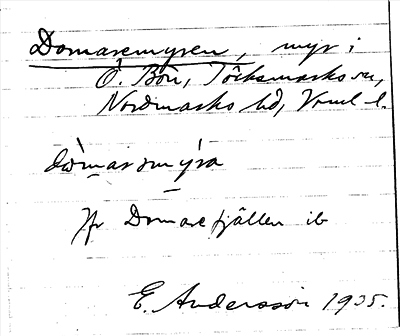 Domaremyren, myr i
Ö. Bön, Töcksmarks sn,
Nordmarks hd, Vrml l.
dòmarəmýra
Jfr Domarefjällen ib
E. Andersson 1935.